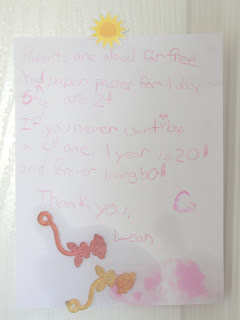 Parents are aloud for free
paper passes for 1 day
are 2$
If you never want to by
a one. 1 year is 20$
and forever living 60$
Thank you,
Leah